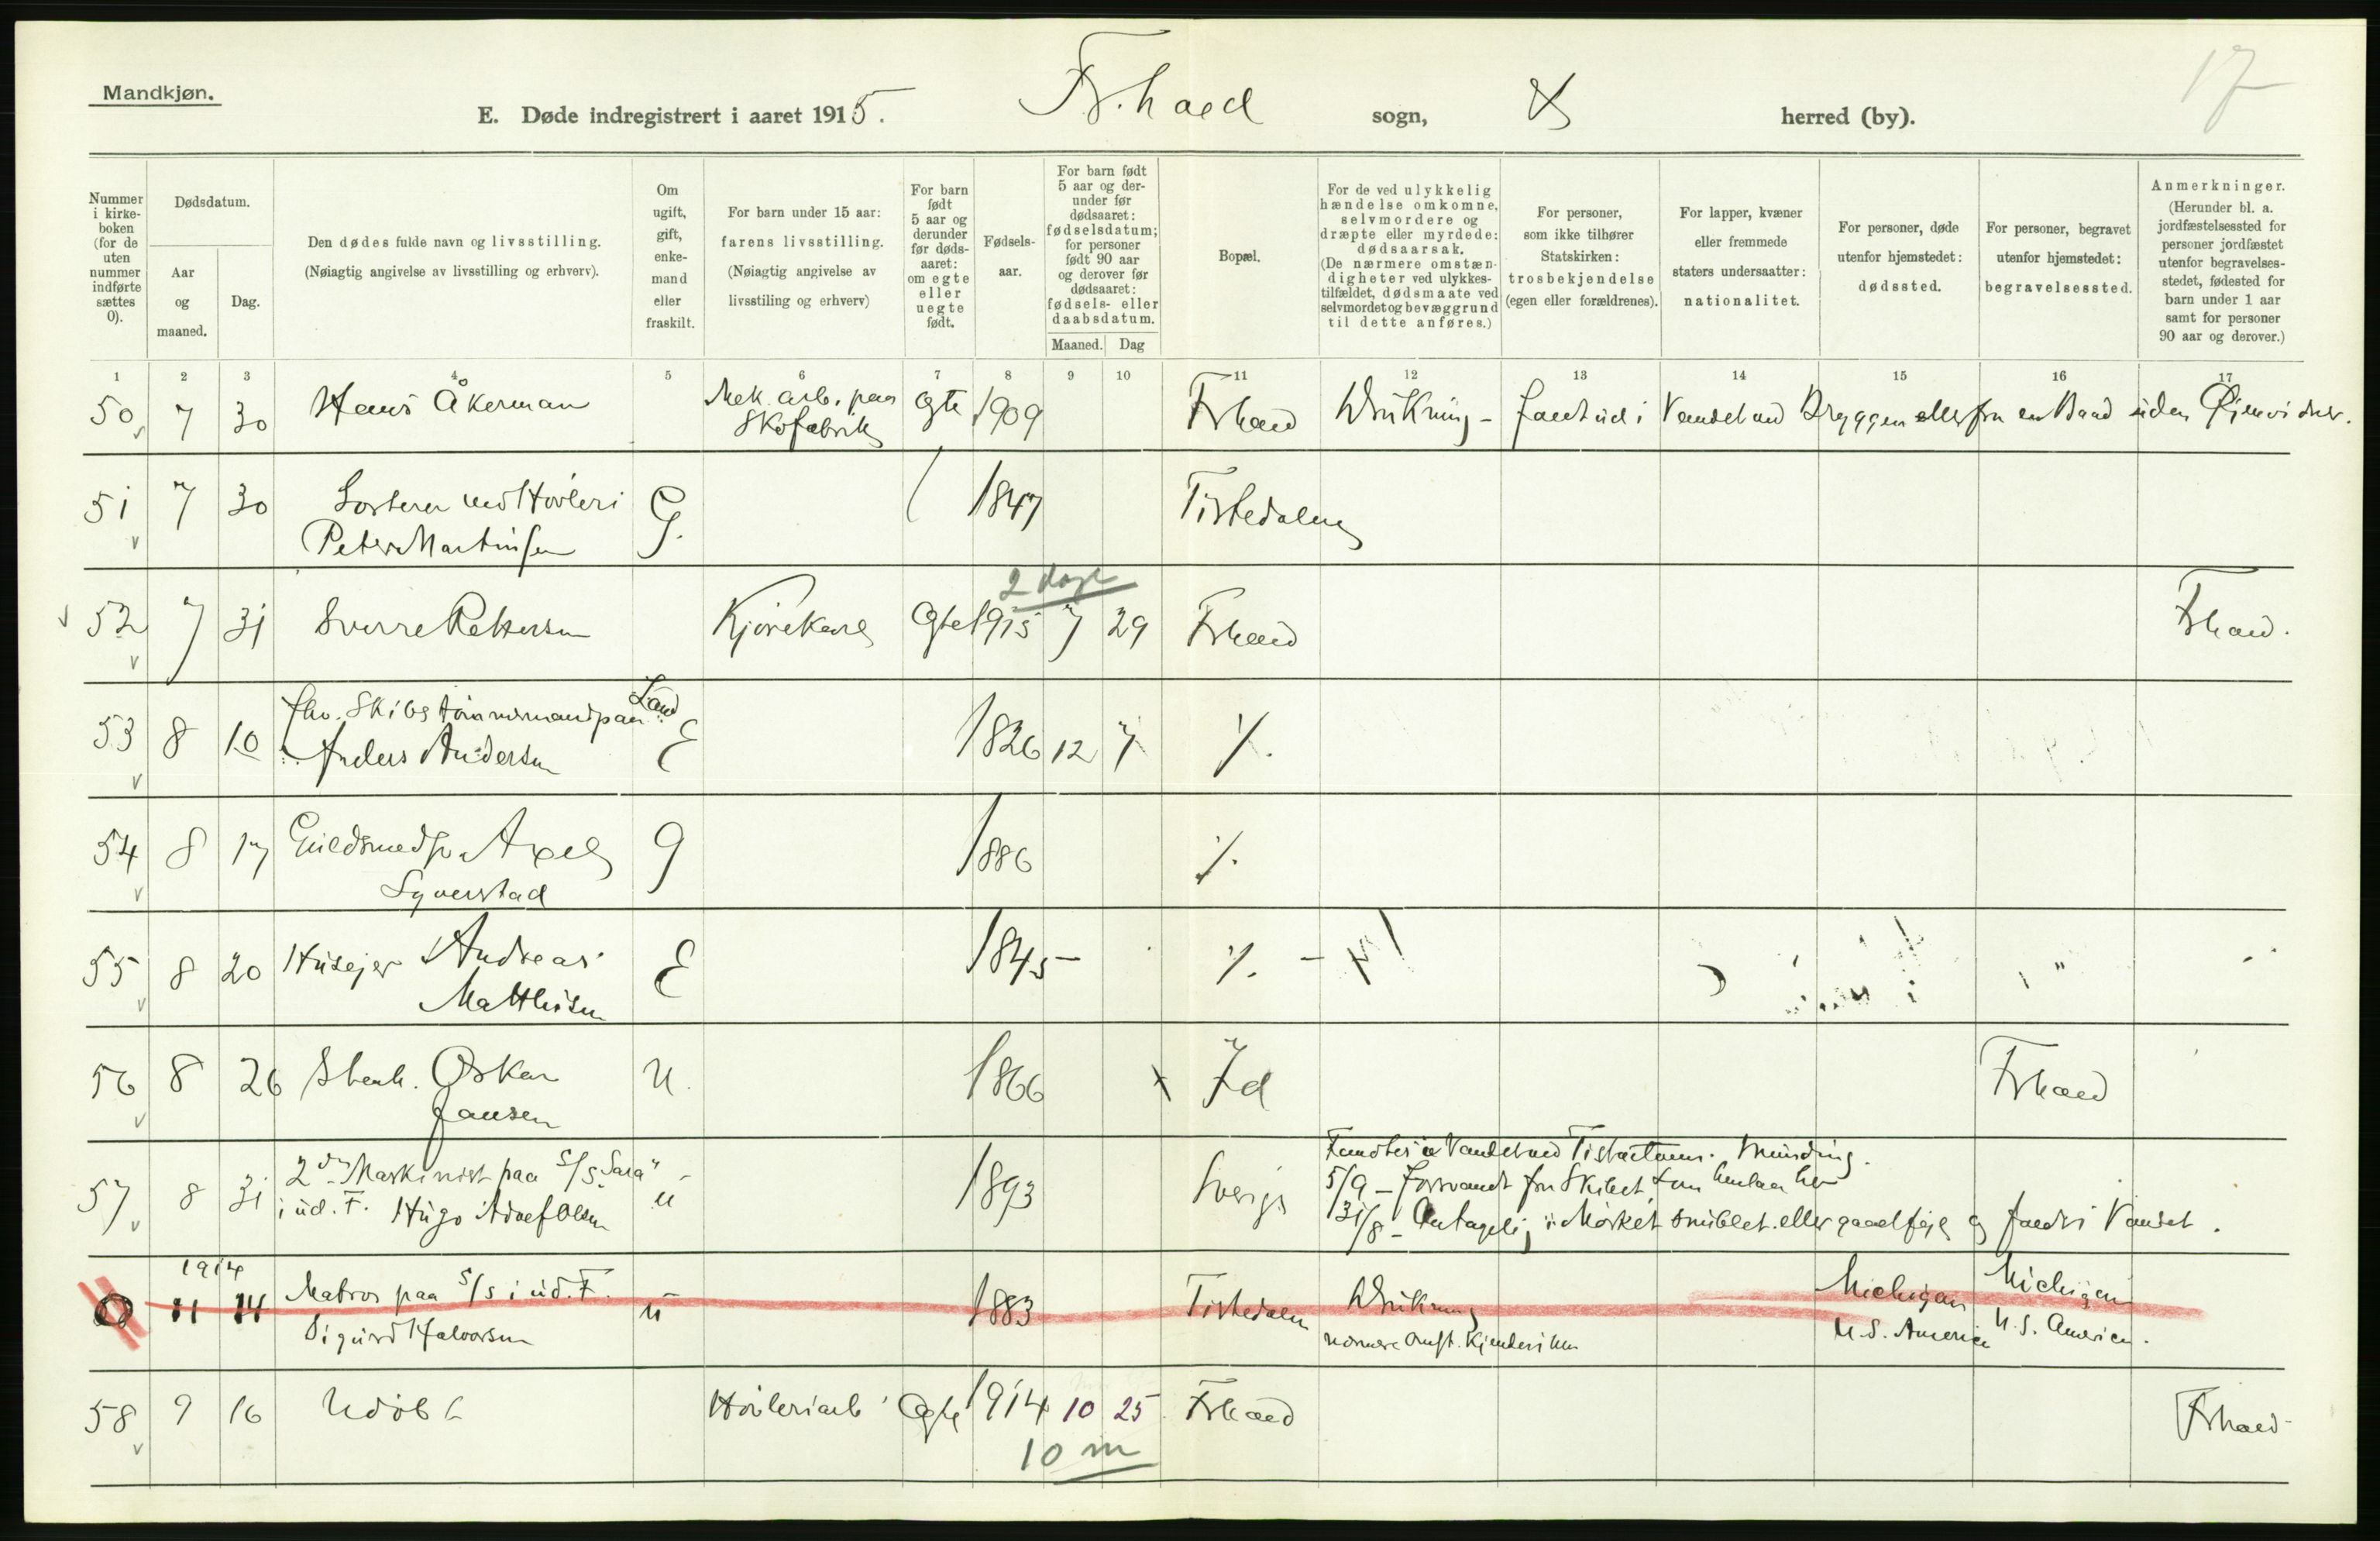 17
Mandkjøn.
E. Døde indregistrert i aaret 1915. Fr.hald sogn, herred (by).
Nummer i kirke- boken (for de uten nummer indførte sættes 0).
Dødsdatum.
Aar og maaned.
Dag.
Den dødes fulde navn og livsstilling.
(Nøiagtig angivelse av livsstilling og erhverv).
Om ugift, gift, enke- mand eller fraskilt.
For barn under 15 aar:
farens livsstilling.
(Nøiagtig angivelse av
livsstiling og erhverv)
For barn født 5 aar og derunder før døds- aaret: om egte eller uegte født.
Fødsels- aar.
For barn født 5 aar og der- under før dødsaaret: fødselsdatum; for personer født 90 aar og derover før dødsaaret: fødsels- eller daabsdatum.
Maaned. Dag
Bopæl.
For de ved ulykkelig hændelse omkomne, selvmordere og dræpte eller myrdede: dødsaarsak. (De nærmere omstæn- digheter ved ulykkes- tilfældet, dødsmaate ved selvmordet og bevæggrund til dette anføres.)
For personer, som ikke tilhører Statskirken: trosbekjendelse (egen eller forældrenes).
For lapper, kvæner eller fremmede staters undersaatter: nationalitet.
For personer, døde utenfor hjemstedet: dødssted.
For personer, begravet utenfor hjemstedet: begravelsessted.
Anmerkninger. (Herunder bl. a. jordfæstelsessted for personer jordfæstet utenfor begravelses- stedet, fødested for barn under 1 aar samt for personer 90 aar og derover.)
1 2 3 4 5 6 7 8 9 10 11 12 13 14 15 16 17
50 7 30 Hans Åkerman Mek. arb. paa Skofabrik Egte 1909 Frhald Drukning - faldt ud i Vandet ved Bryggen eller fra en Baad uden Øienvidner.
51 7 30 Sorterer ved Høvleri
Peter Martinsen G. 1847 Tistedalen
2 dage
52 7 31 Sverre Pettersen Kjørekarl Egte 1915 7 29 Frhald Frhald.
53 8 10 fhv. Skibstømmermand paa Land
Anders Andersen E 1826 12 7 ⁒
54 8 17 Guldsmedsv. Axel
Syverstad G 1886 ⁒
55 8 20 Husejer Andreas
Matthisen E 1845 ⁒
56 8 26 Stenh. Oskar
Jansen U. 1866 x Id Frhald
57 8 31 2den Maskinist paa S/S "Sara"
i ud. F. Hugo Adolf Olsen u 1893 Sverige
Fandtes i Vandet ved Tistaelvens Munding.
5/9 - Forsvandt fra Skibet, som henlaa her
31/8 - Antagelig i Mørket snublet eller gaaet feil og faldt i Vandet.
0 1914 11 14 Matros paa S/S i ud. F.
Sigurd Halvorsen u 1883 Tistedalen Drukning
nærmere Omst. Kjendes ikke
Michigan
U.S. America
Michigan
U.S. America.
58 9 16 Udøbt Høvleriarb. Egte 1914 10 25 Frhald Frhald
10 m